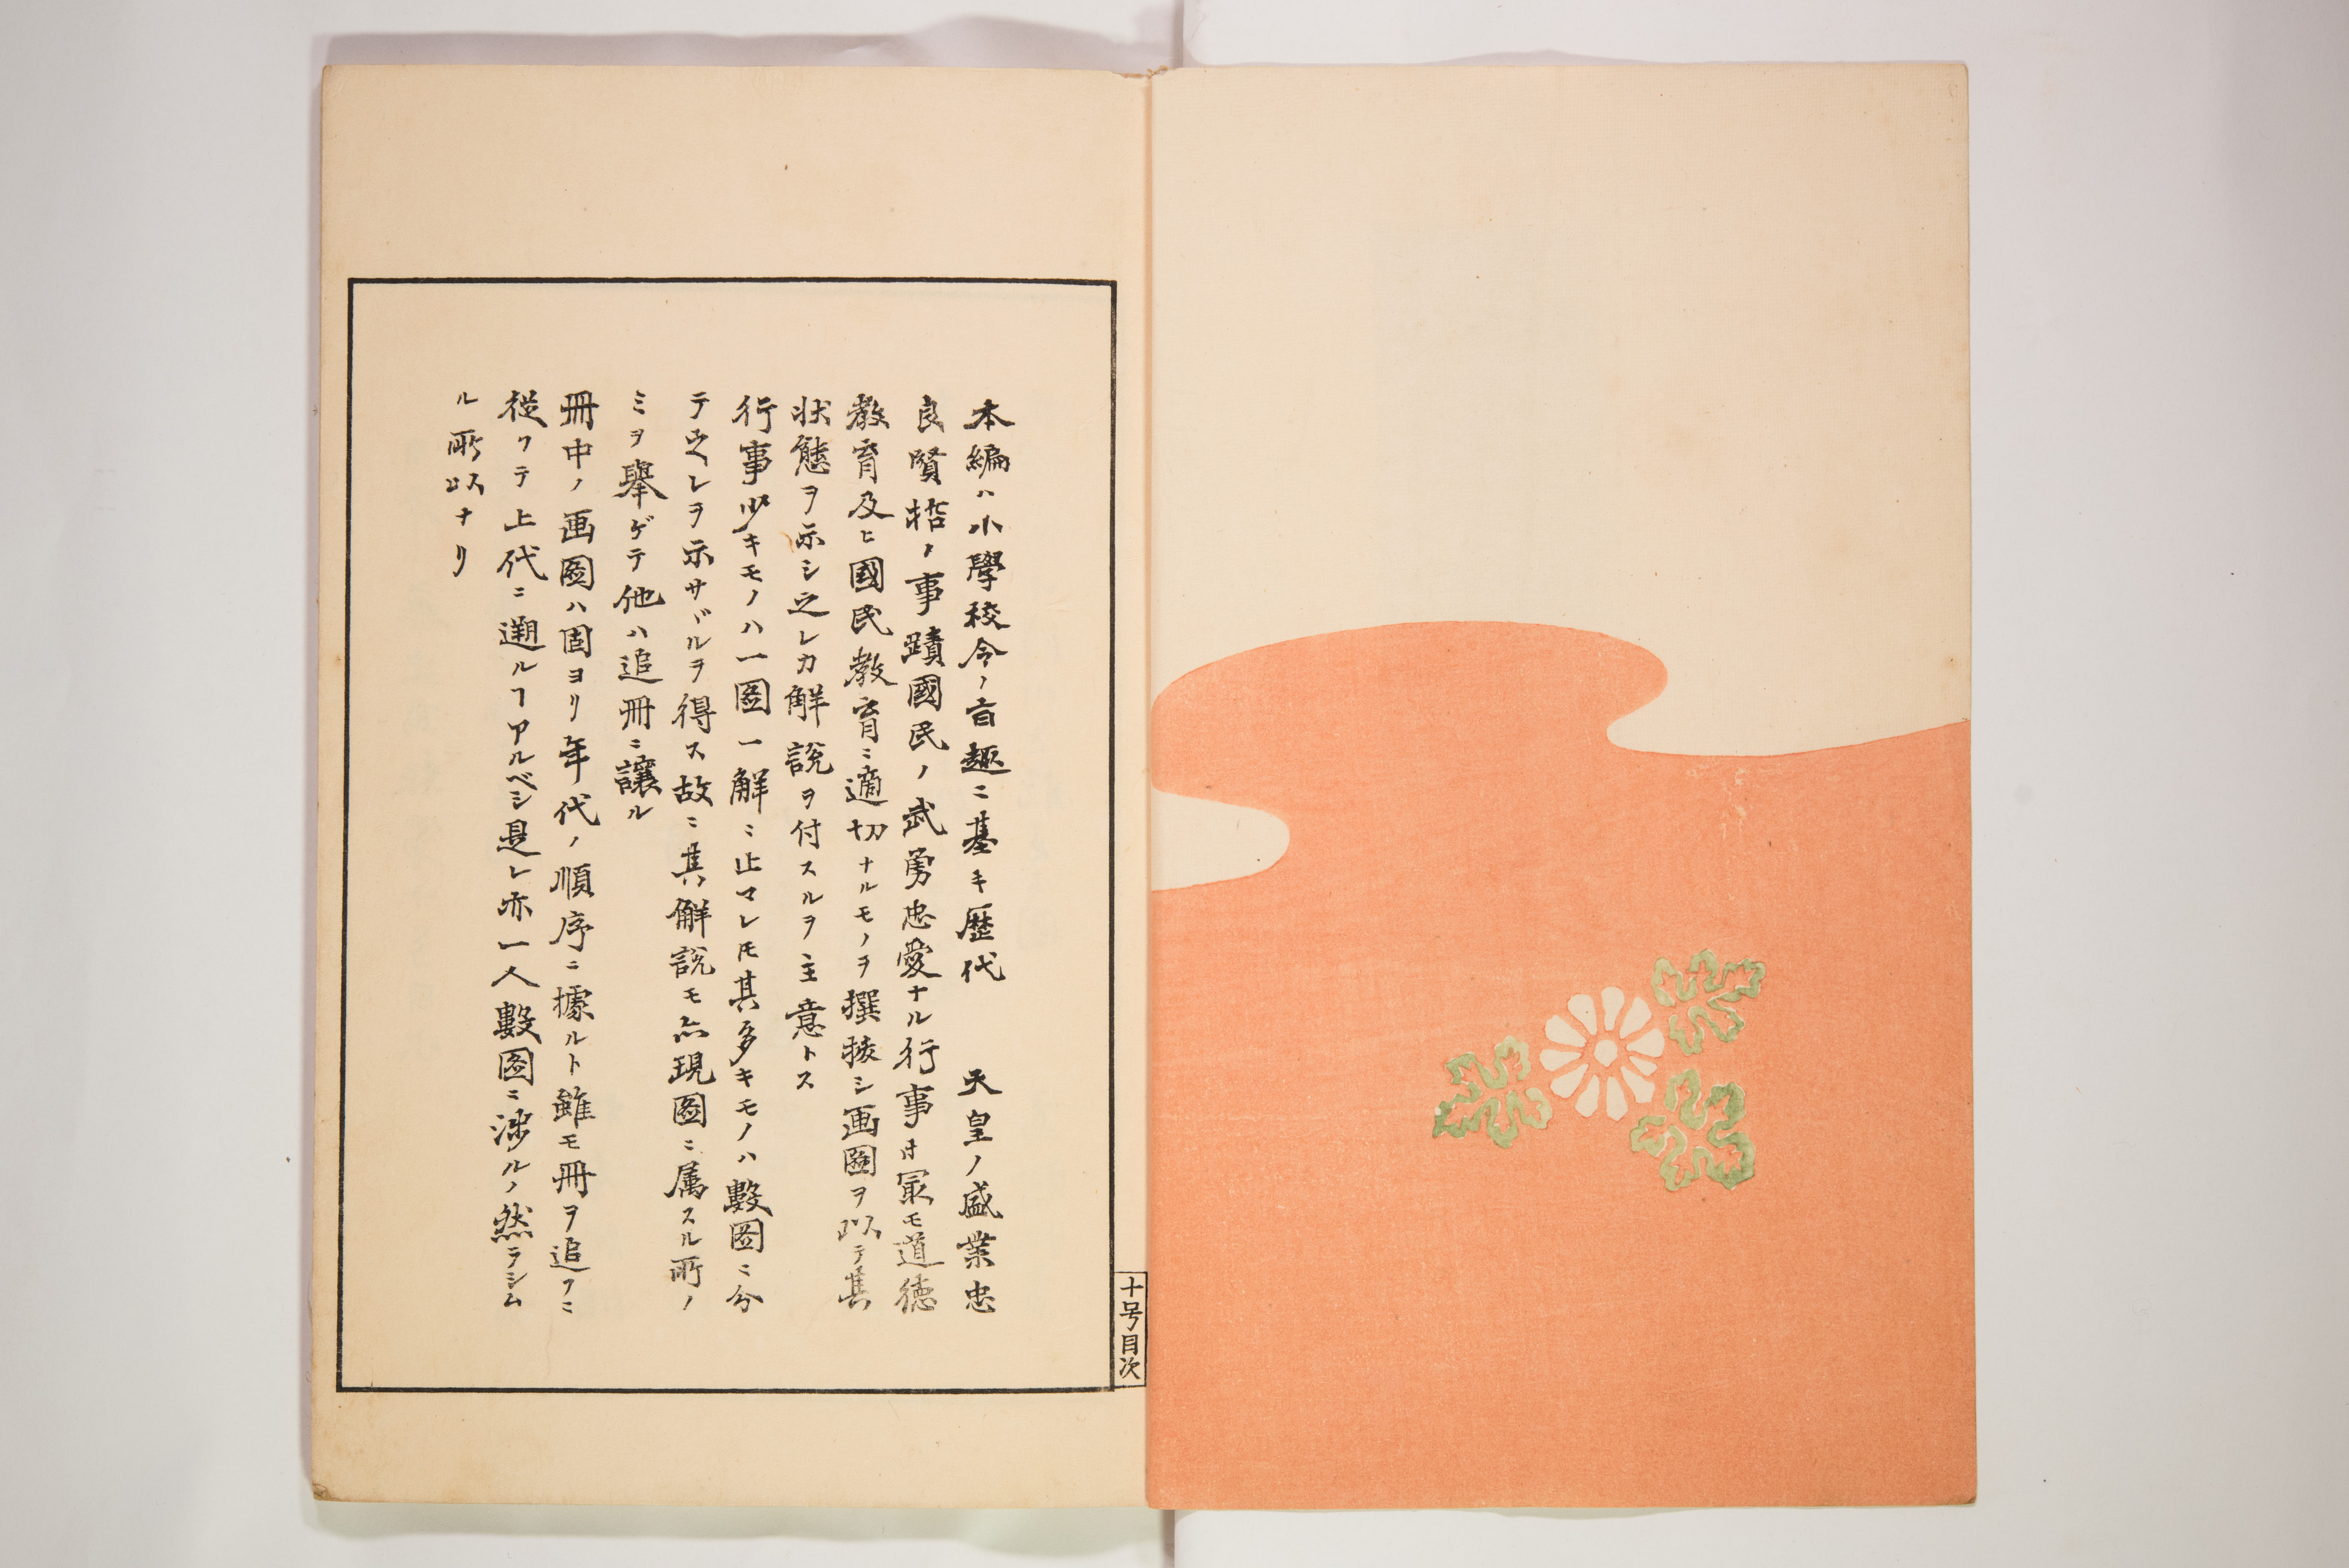 本編ハ小學校令ノ旨趣ニ基キ歴代　天皇ノ盛業忠
良賢哲ノ事蹟國民ノ武勇忠愛ナル行事中冣モ道徳
教育及ヒ國民教育ニ適切ナルモノヲ撰抜シ画圖ヲ以テ其
状態ヲ示シ之レカ解説ヲ付スルヲ主意トス
行事少キモノハ一圖一解ニ止マレ𪜈其多キモノハ數圖ニ分
テ之レヲ示サヾルヲ得ス故ニ其解説モ亦現圖ニ属スル所ノ
ミヲ擧ゲテ他ハ追冊ニ讓ル
冊中ノ画圖ハ固ヨリ年代ノ順序ニ據ルト雖モ冊ヲ追フニ
從フテ上代ニ遡ルヿアルベシ是レ亦一人數圖ニ渉ルノ然ラシム
ル所以ナリ
十号目次